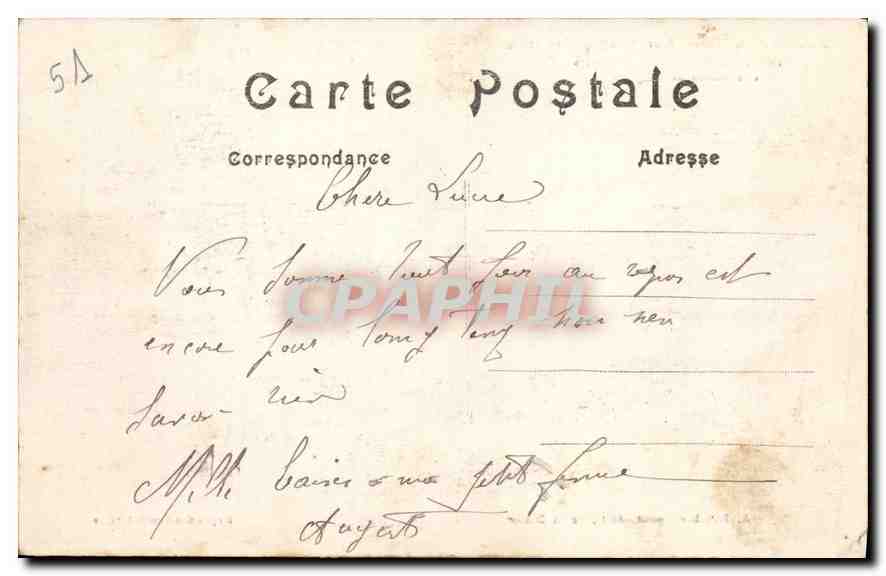 51
Carte Postale
Correspondance
Adresse
Chere Lucie
Nous somme tout jour au repos est
encore pour long temp nous nen
savon rien
Mille baiser a ma petit femme
August
CPAPHIL